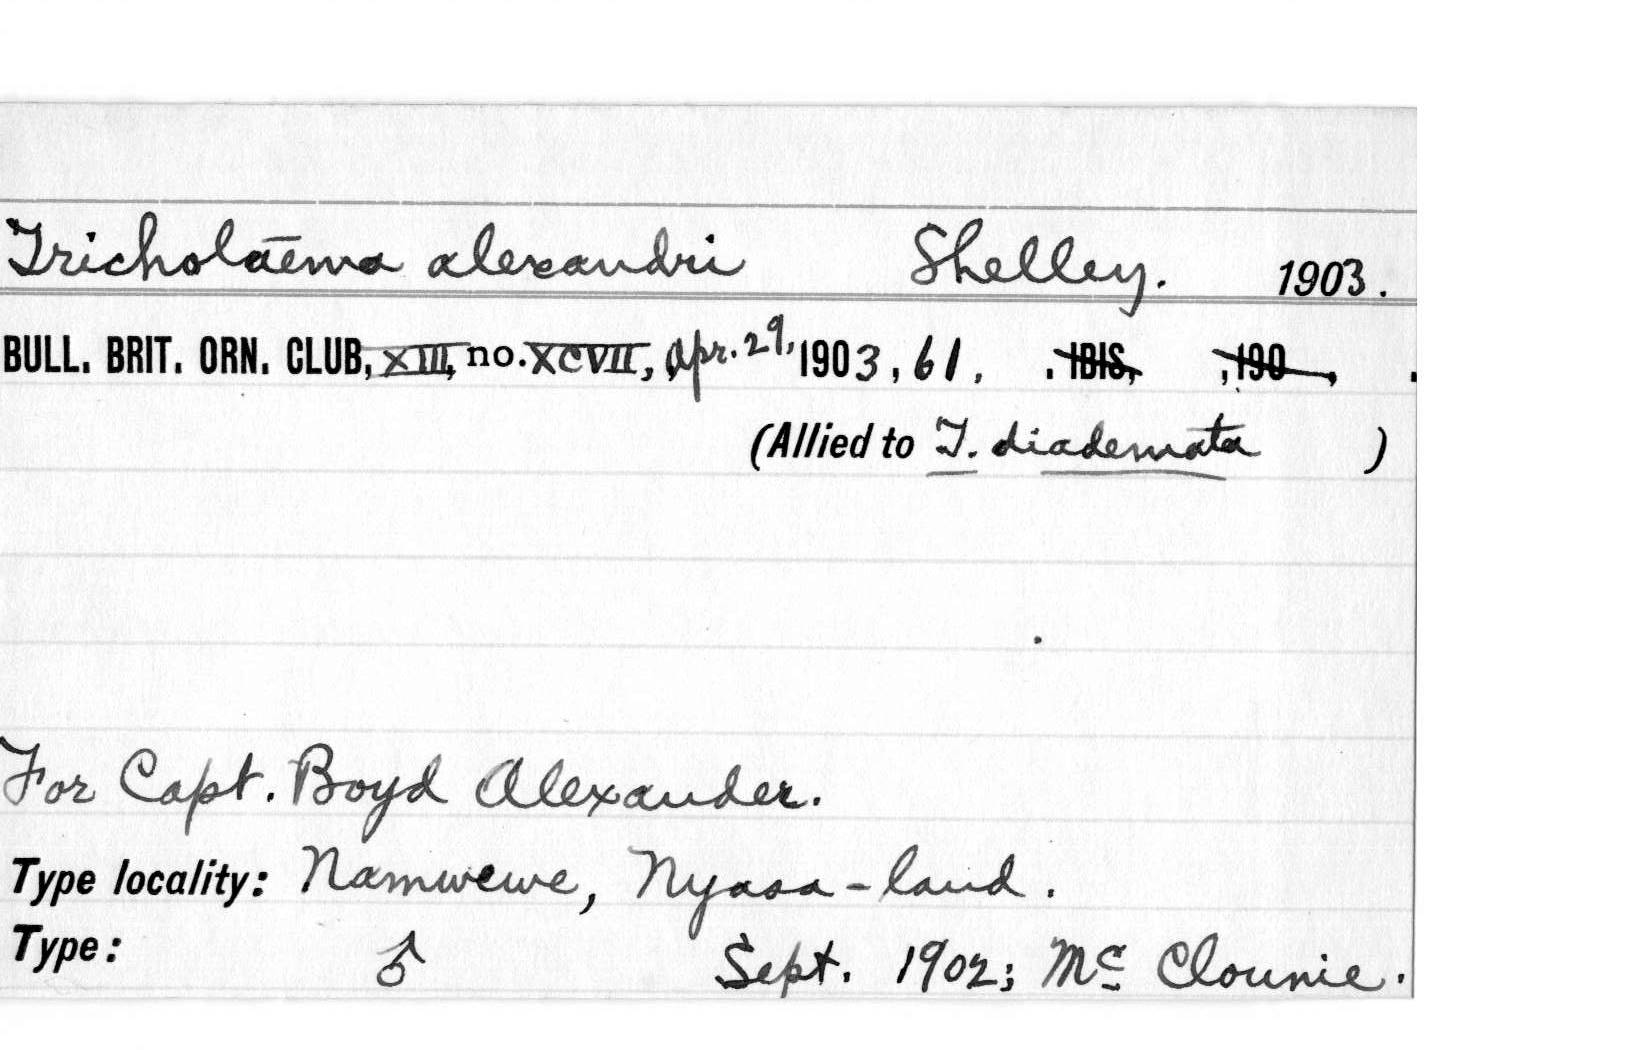 Tricholaēma alexandri Shelley. 1903.
BULL. BRIT. ORN. CLUB, XIII, no. XCVII, Apr. 29, 1903, 61. . IBIS, , 190 , .
(Allied to T. diademata )
For Capt. Boyd Alexander.
Type locality: Namwewe, Nyasa-land.
Type: ♂ Sept. 1902; Mc Clounie.